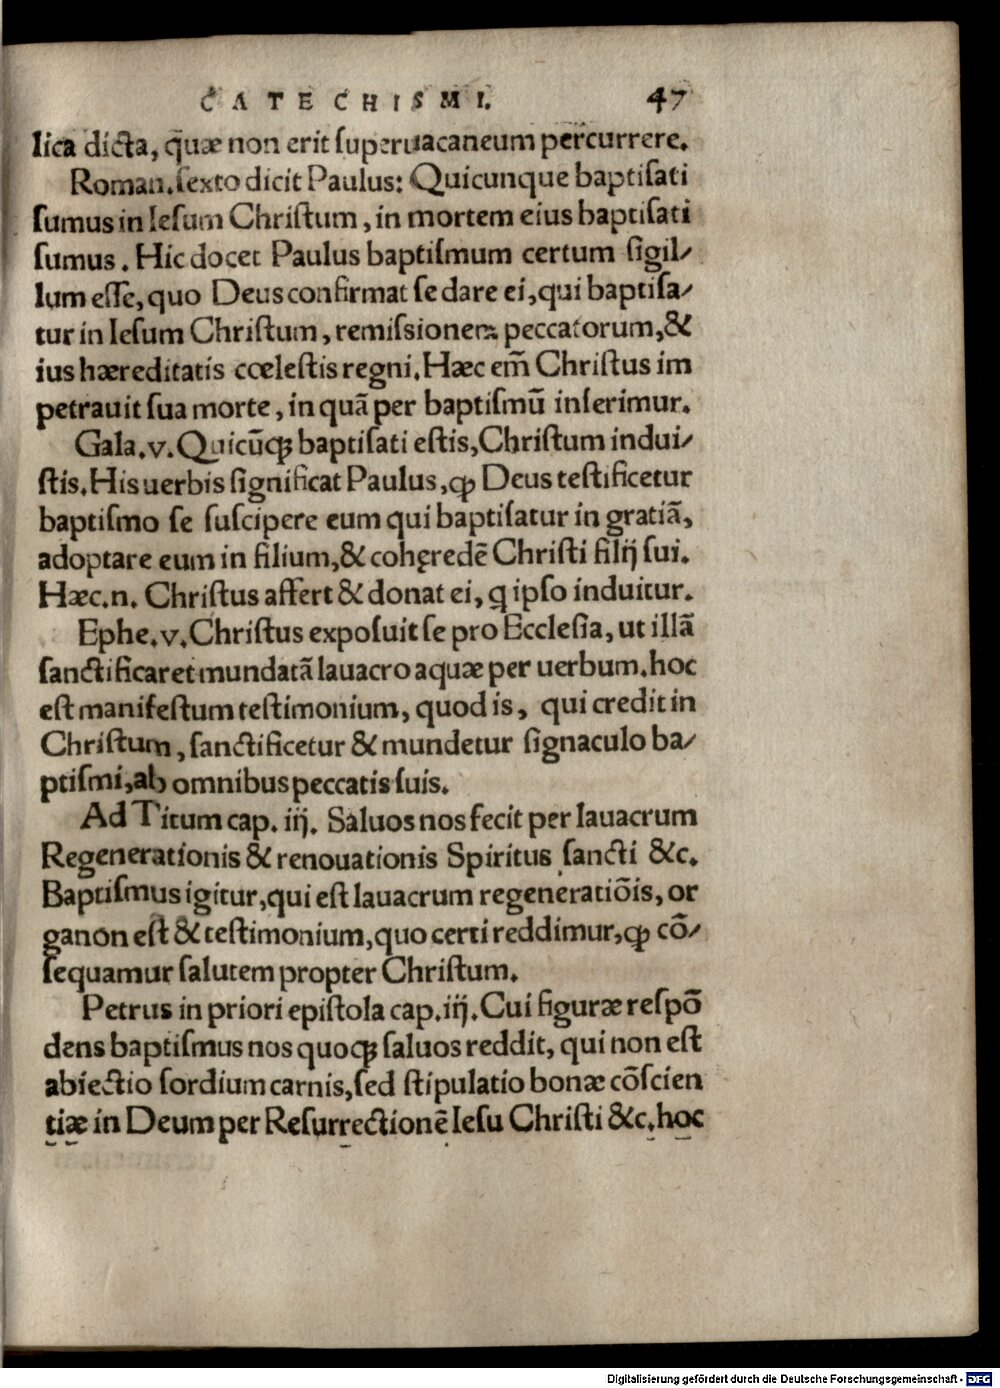 CATECHISMI. 47
lica dicta, quæ non erit ſuperuacaneum percurrere.
Roman. ſexto dicit Paulus: Quicunque baptiſati
ſumus in Ieſum Chriſtum, in mortem eius baptiſati
ſumus. Hic docet Paulus baptiſmum certum ſigil⸗
lum eſſe, quo Deus confirmat ſe dare ei, qui baptiſa⸗
tur in Ieſum Chriſtum, remiſsionem peccatorum, &
ius hæreditatis cœleſtis regni. Hæc em̃ Chriſtus im
petrauit ſua morte, in quã per baptiſmũ inſerimur.
Gala. v. Quicũqꝫ baptiſati eſtis, Chriſtum indui⸗
ſtis. His uerbis ſignificat Paulus, ꝙ Deus teſtificetur
baptiſmo ſe ſuſcipere eum qui baptiſatur in gratiã,
adoptare eum in filium, & cohęredẽ Chriſti filij ſui.
Hæc.n. Chriſtus affert & donat ei, q ipſo induitur.
Ephe. v. Chriſtus expoſuit ſe pro Eccleſia, ut illã
ſanctificaret mundatã lauacro aquæ per uerbum. hoc
eſt manifeſtum teſtimonium, quod is, qui credit in
Chriſtum, ſanctificetur & mundetur ſignaculo ba⸗
ptiſmi, ab omnibus peccatis ſuis.
Ad Titum cap. iij. Saluos nos fecit per lauacrum
Regenerationis & renouationis Spiritus ſancti &c.
Baptiſmus igitur, qui eſt lauacrum regeneratiõis, or
ganon eſt & teſtimonium, quo certi reddimur, ꝙ cõ⸗
ſequamur ſalutem propter Chriſtum.
Petrus in priori epiſtola cap. iij. Cui figuræ reſpõ
dens baptiſmus nos quoqꝫ ſaluos reddit, qui non eſt
abiectio ſordium carnis, ſed ſtipulatio bonæ cõſcien
tiæ in Deum per Reſurrectionẽ Ieſu Chriſti &c. hoc
Digitalisierung gefördert durch die Deutsche Forschungsgemeinschaft - DFG